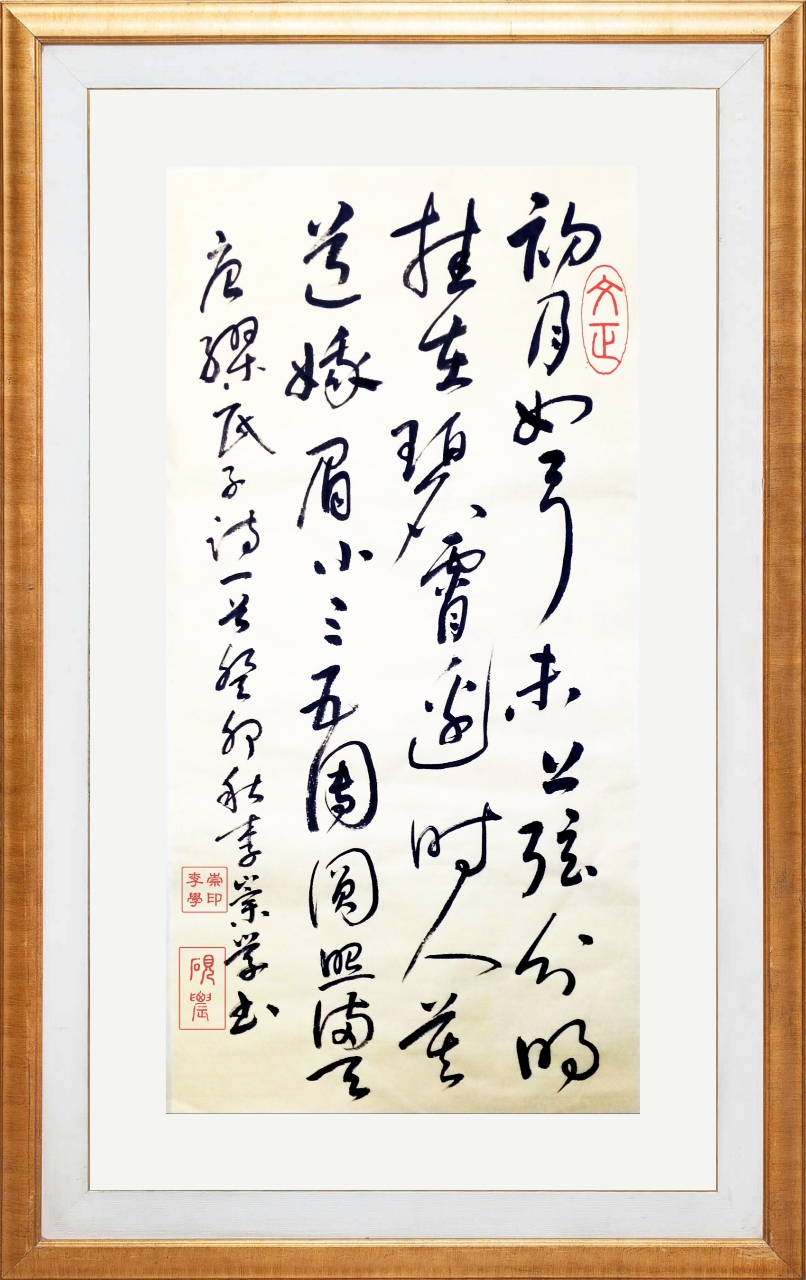 初月如弓未上弦分明
挂在碧霄邊时人莫
道娥眉小三五團圓照满天
唐缪氏子诗一首癸卯秋李崇学书
文正
李崇
學印
硯農